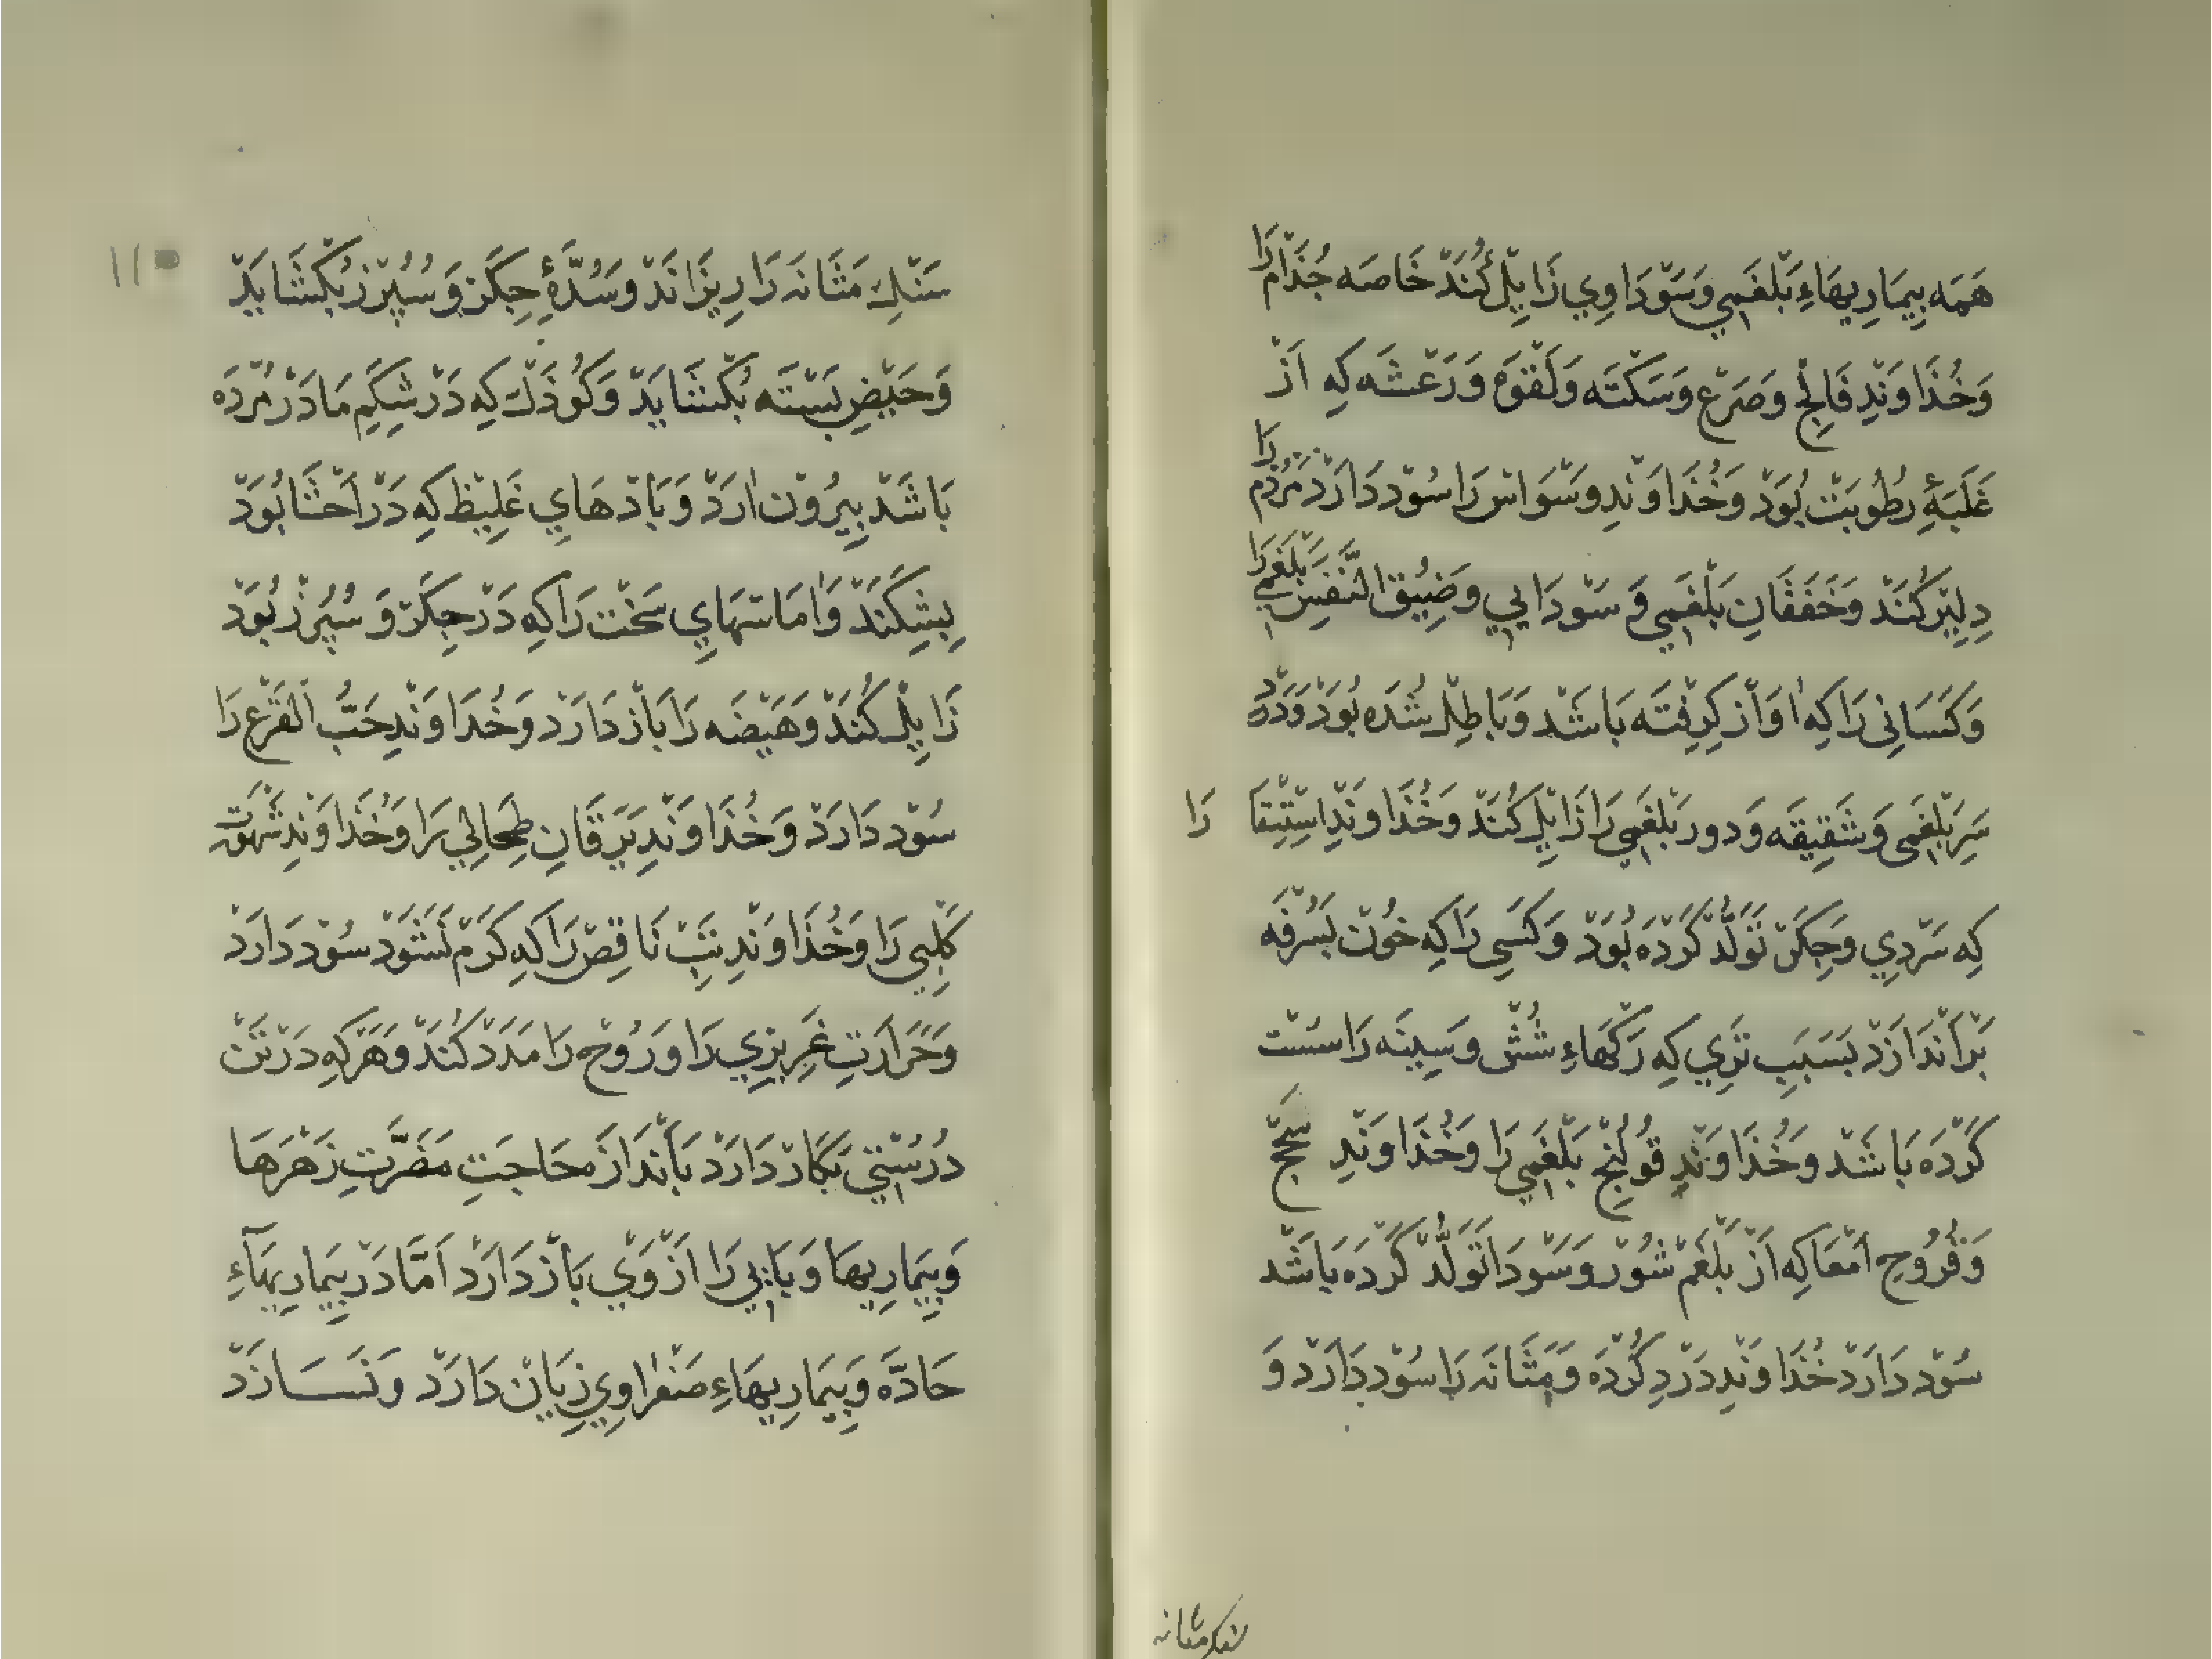 هَمَه بِيمَارِيهَاءِ بَلْغَمِي وَسَوْدَاوِي زَايِلْ كُنَدْ خَاصَه جُذَامْ رَا
وَخُذَاوَنْدِ فَالِجْ وَصَرْع وَسَكْتَه وَلَقْوَه وَرَعْشَه كِه اَزْ
غَلَبَهِٔ رُطُوبَتْ بُوَدْ وَخُذَاوَنْدِ وَسْوَاسْ رَا سُوْد دَارَدْ مَرْدُم رَا
دِلِيْر كُنَدْ وَخَفَقَانِ بَلْغَمِي وَ سَوْدَايِي وَضِيْقُ النَّفَسِ بَلْغَمِي رَا
وَكَسَانِى رَا كِه اوَاز كِرِفْتَه بَاشَد وَبَاطِلْ شُدَه بُوَدْ وَدَرْدِ
سَرِ بَلْغَمِى وَشَقِيقَه وَدور بَلْغَمِي رَا زَايِلْ كُنَدْ وَخُذَاوَنْدِ اسْتِسْقَا رَا
كِه سَرْدِي وَجِكَرْ تَوَلُّد كَرْدَه بُوَدْ وَكَسِى رَا كِه خُونْ بَسُرْفَه
بَرْاَنْدَازَدْ بَسَبَبِ تَرِي كِه رَكْهَاءِ شُشْ وَسِينَه رَا سُسْت
كَرْدَه بَاشَدْ وَخُذَاوَنْدِ قُولَنْج بَلْغَمِي رَا وَخُذَاوَنْدِ سَحْج
وَقُرُوحِ اَمْعَا كِه اَزْ بَلْغَمْ شُوْر وَسَوْدَا تَوَلُّدْ كَرْدَه بَاشَدْ
سُوْد دَارَدْ خُذَاوَنْدِ دَرْدِ كُرْدَه وَمَثَانَه رَا سُوْد دَارَدْ وَ
سنك مثانه
سَنْكِ مَثَانَه رَا رِيزَانَدْ وَسُدَّهِٔ جِكَرْ وَسُپُرْز بُكْشَايَدْ
وَحَيْضِ بَسْتَه بُكْشَايَدْ وَكُوذَكْ كِه دَرْ شِكَمِ مَادَرْ مُرْدَه
بَاشَدْ بِيرُونْ ارَدْ وَبَادْهَايِ غَلِيْظ كِه دَرْ اَحْشَا بُوَدْ
بِشِكَنَدْ وَامَاسْهَايِ سَخْت رَا كِه دَرْ جِكَرْ وَ سُپُرْز بُوَدْ
زَايِلْ كُنَدْ وَهَيْضَه رَا بَازْ دَارَدْ وَخُدَاوَنْدِ حَبُّ الْقَرْع رَا
سُوْد دَارَدْ وَخُذَاوَنْدِ يَرَقَانِ طِحَالِي رَا وَخُذَاوَنْدِ شَهْوَتِ
كَلْبِي رَا وَخُذَاوَنْدِ تَبِ نَاقِصْ رَا كِه كَرْم نَشَوَدْ سُوْد دَارَدْ
وَحَرَارَتِ غَرِيزِي رَا وَرُوْح رَا مَدَدْ كُنَدْ وَهَرْكِه دَرْ تَنْ
دُرُسْتِي بَكَارْ دَارَدْ بَاَنْدَازَه حَاجَتِ مَضَرَّتِ زَهْرَهَا
وَبِيمَارِيهَا وَبَايِي رَا اَزْ وَيْ بَازْ دَارَدْ اَمَّا دَرْ بِيمَارِيهَاءِ
حَادَّه وَبِيمَارِيهَاءِ صَفْرَاوِي زِيَانْ دَارَدْ وَنَسَازَدْ